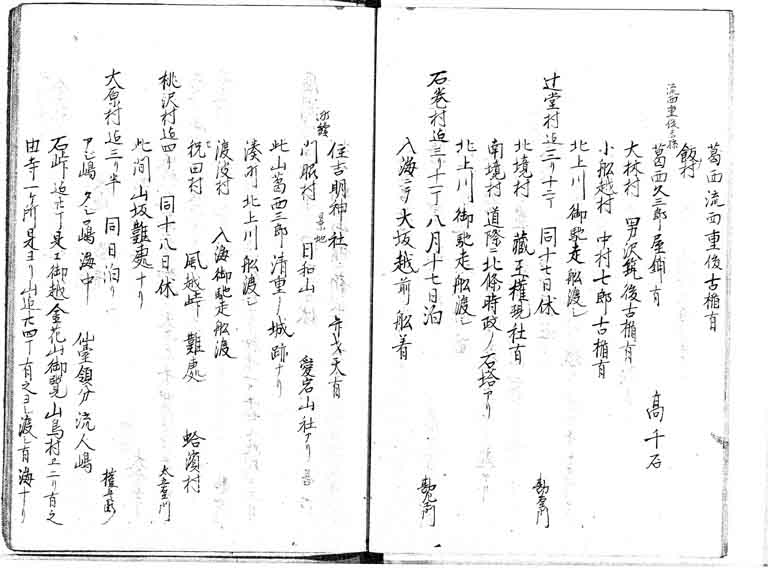 葛西流西重俊古楯有
流西重俊子孫
飯村
葛西久三郎屋鋪有
高千石
大林村 男沢筑後古楯有
小船越村 中村七郎古楯有
北上川御馳走船渡シ
辻堂村迄二リ十二丁 同十七日休
北境村 蔵王権現社有
南境村 道際ニ北條時政ノ石塔アリ
北上川御馳走船渡シ
石巻村迄三リ十一丁 八月十七日泊
入海ニテ大坂越前船着
住吉明神社 弁才天有
門脇村 景地 日和山 愛宕山社アリ
此山葛西三郎清重ノ城跡ナリ
湊町北上川船渡シ
渡波村 入海御馳走船渡
祝田村 風越峠 難處 蛤濱村
桃沢村迄四リ 同十八日休
此間山坂難處ナリ
大原村迄三リ半 同日泊リ
アシ嶋 嶋海中 仙臺領分流人嶋
石峠迄 是ヱ御越金花山御覧山鳥村ヱ二リ有之
由寺一ケ所是ヨリ山迄六四丁有之ヨシ渡シ有海ナリ